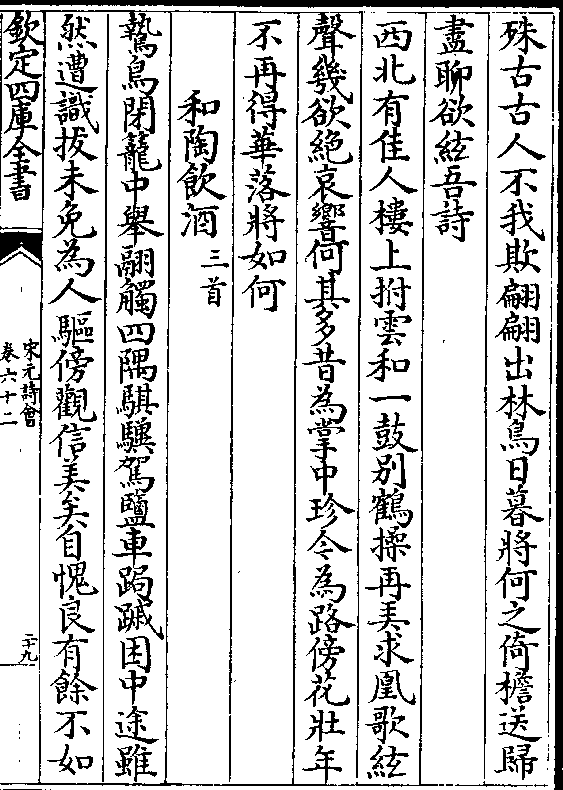 殊古古人不我欺翩翩出林鳥日暮將何之倚檐送歸
盡聊欲絃吾詩
西北有佳人樓上拊雲和一鼓别鶴操再弄求凰歌絃
聲幾欲絶哀響何其多昔為掌中珍今為路傍花壯年
不再得華落將如何
和陶飲酒三首
鷙鳥閉籠中舉翮觸四隅騏驥駕鹽車跼蹐困中途雖
然遭識拔未免為人驅傍觀信美矣自愧良有餘不如
欽定四庫全書
宋元詩會
卷六十二
二十九